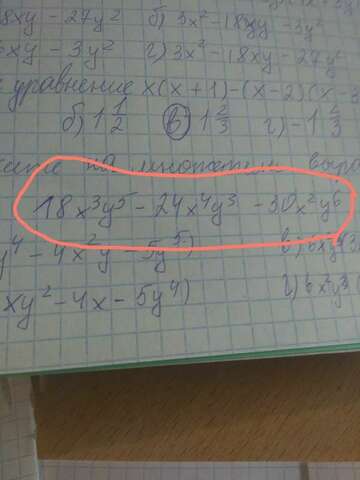 8xy - 27y² б) 3x² - 18xy - 3y²
xy - 3y² г) 3x² - 18xy - 27y²
уравнение x(x + 1) - (x - 2)(x - 3
б) 1 1/2 в) 1 2/3 г) - 1 2/3
на множители
18x³y⁵ - 24x⁴y³ - 30x²y⁶
y⁴ - 4x²y - 5y⁵) в) 6xy³(3
xy² - 4x - 5y⁴) г) 6x²y³(